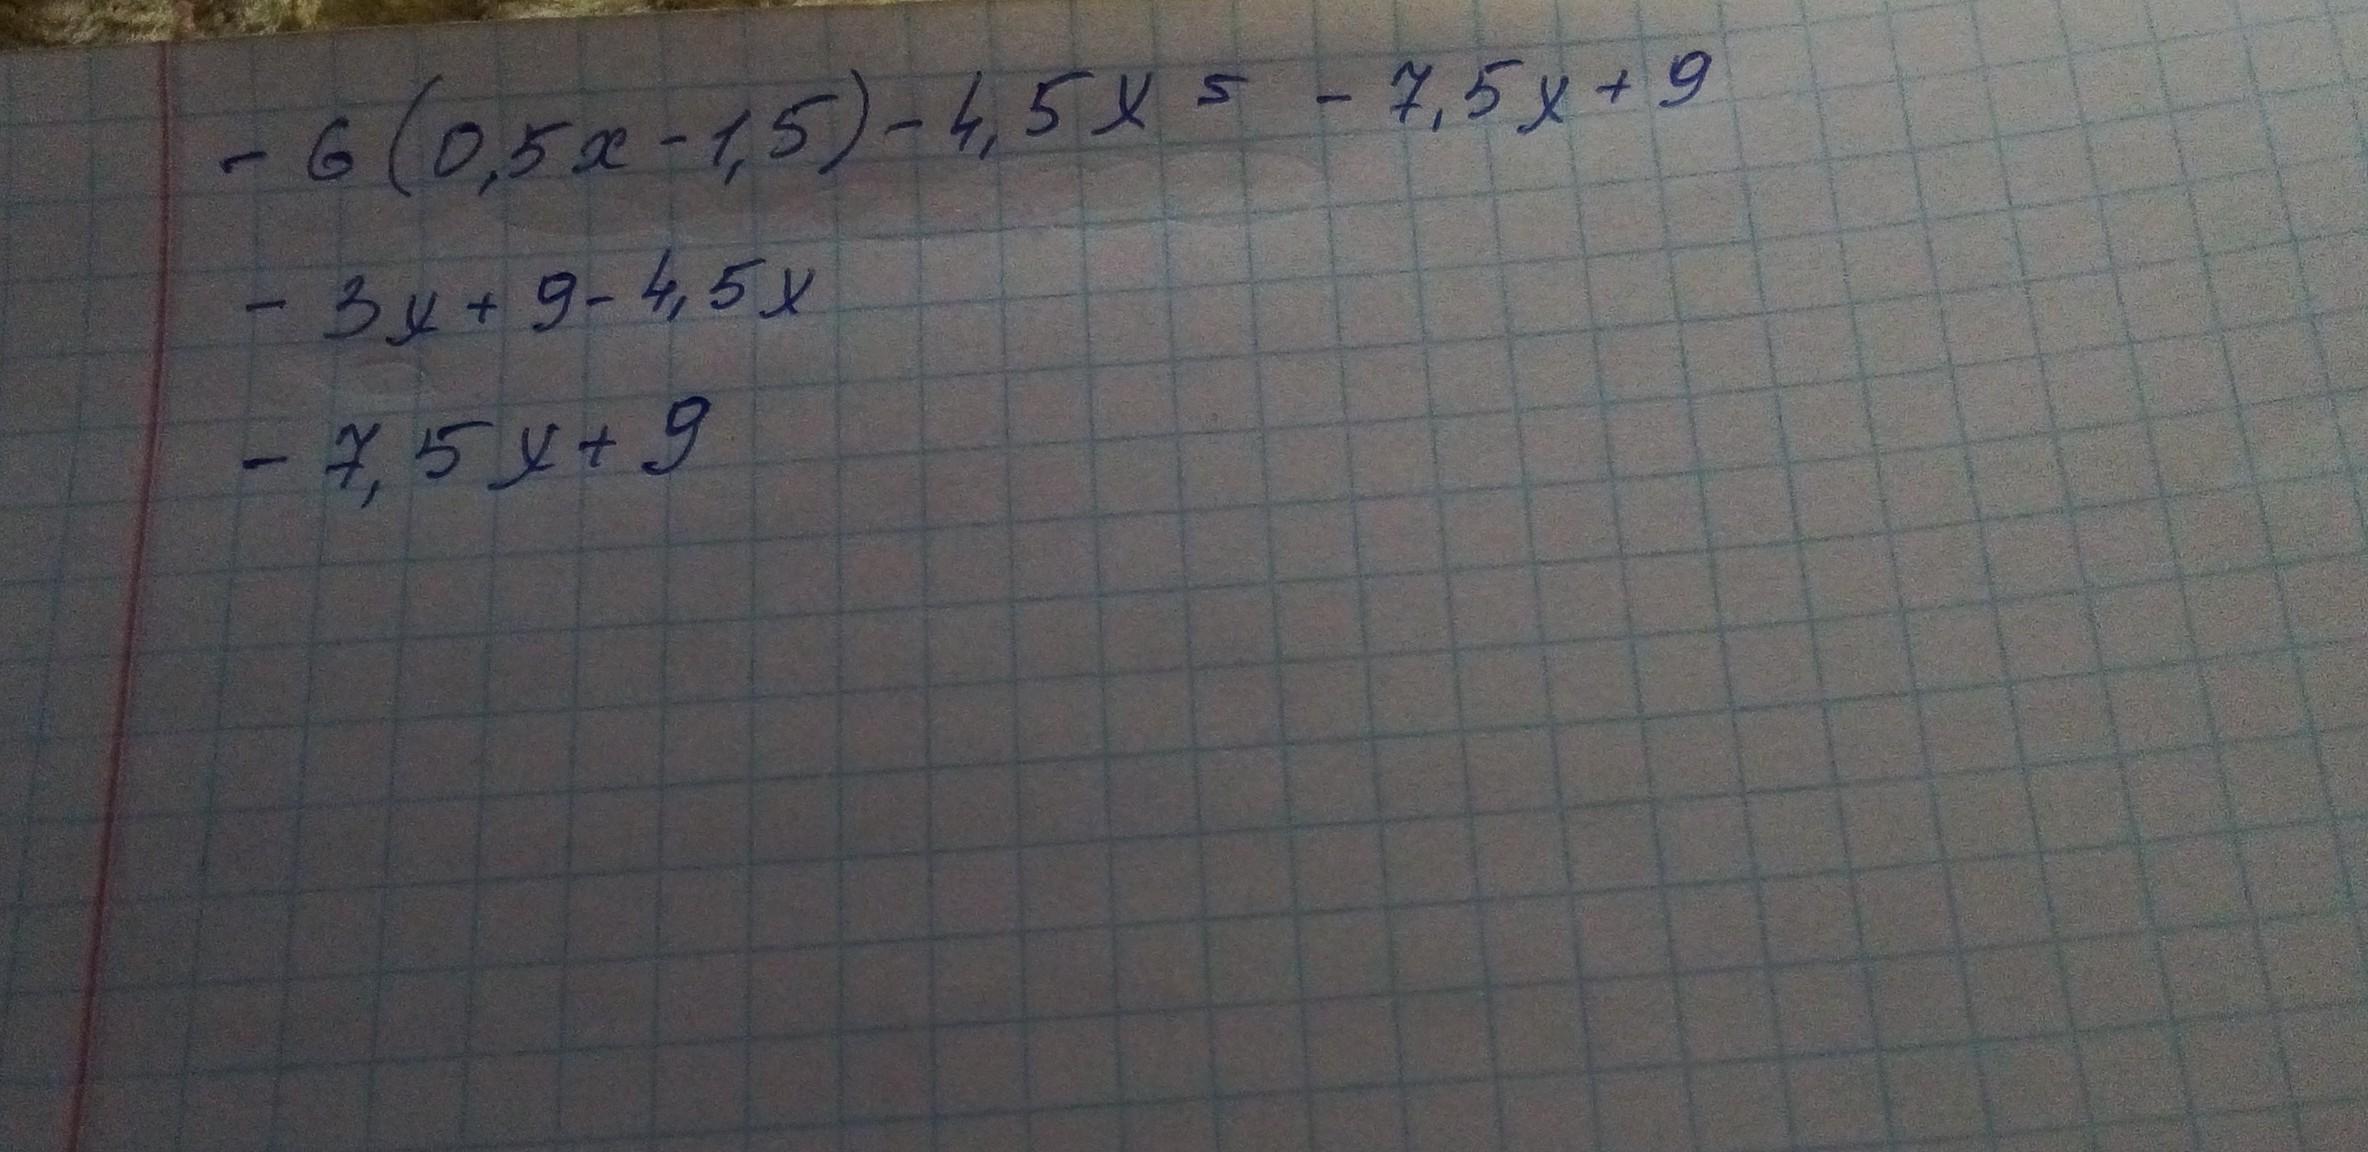 - 6 (0,5x - 1,5) - 4,5x = - 7,5x + 9
- 3x + 9 - 4,5x
- 7,5x + 9